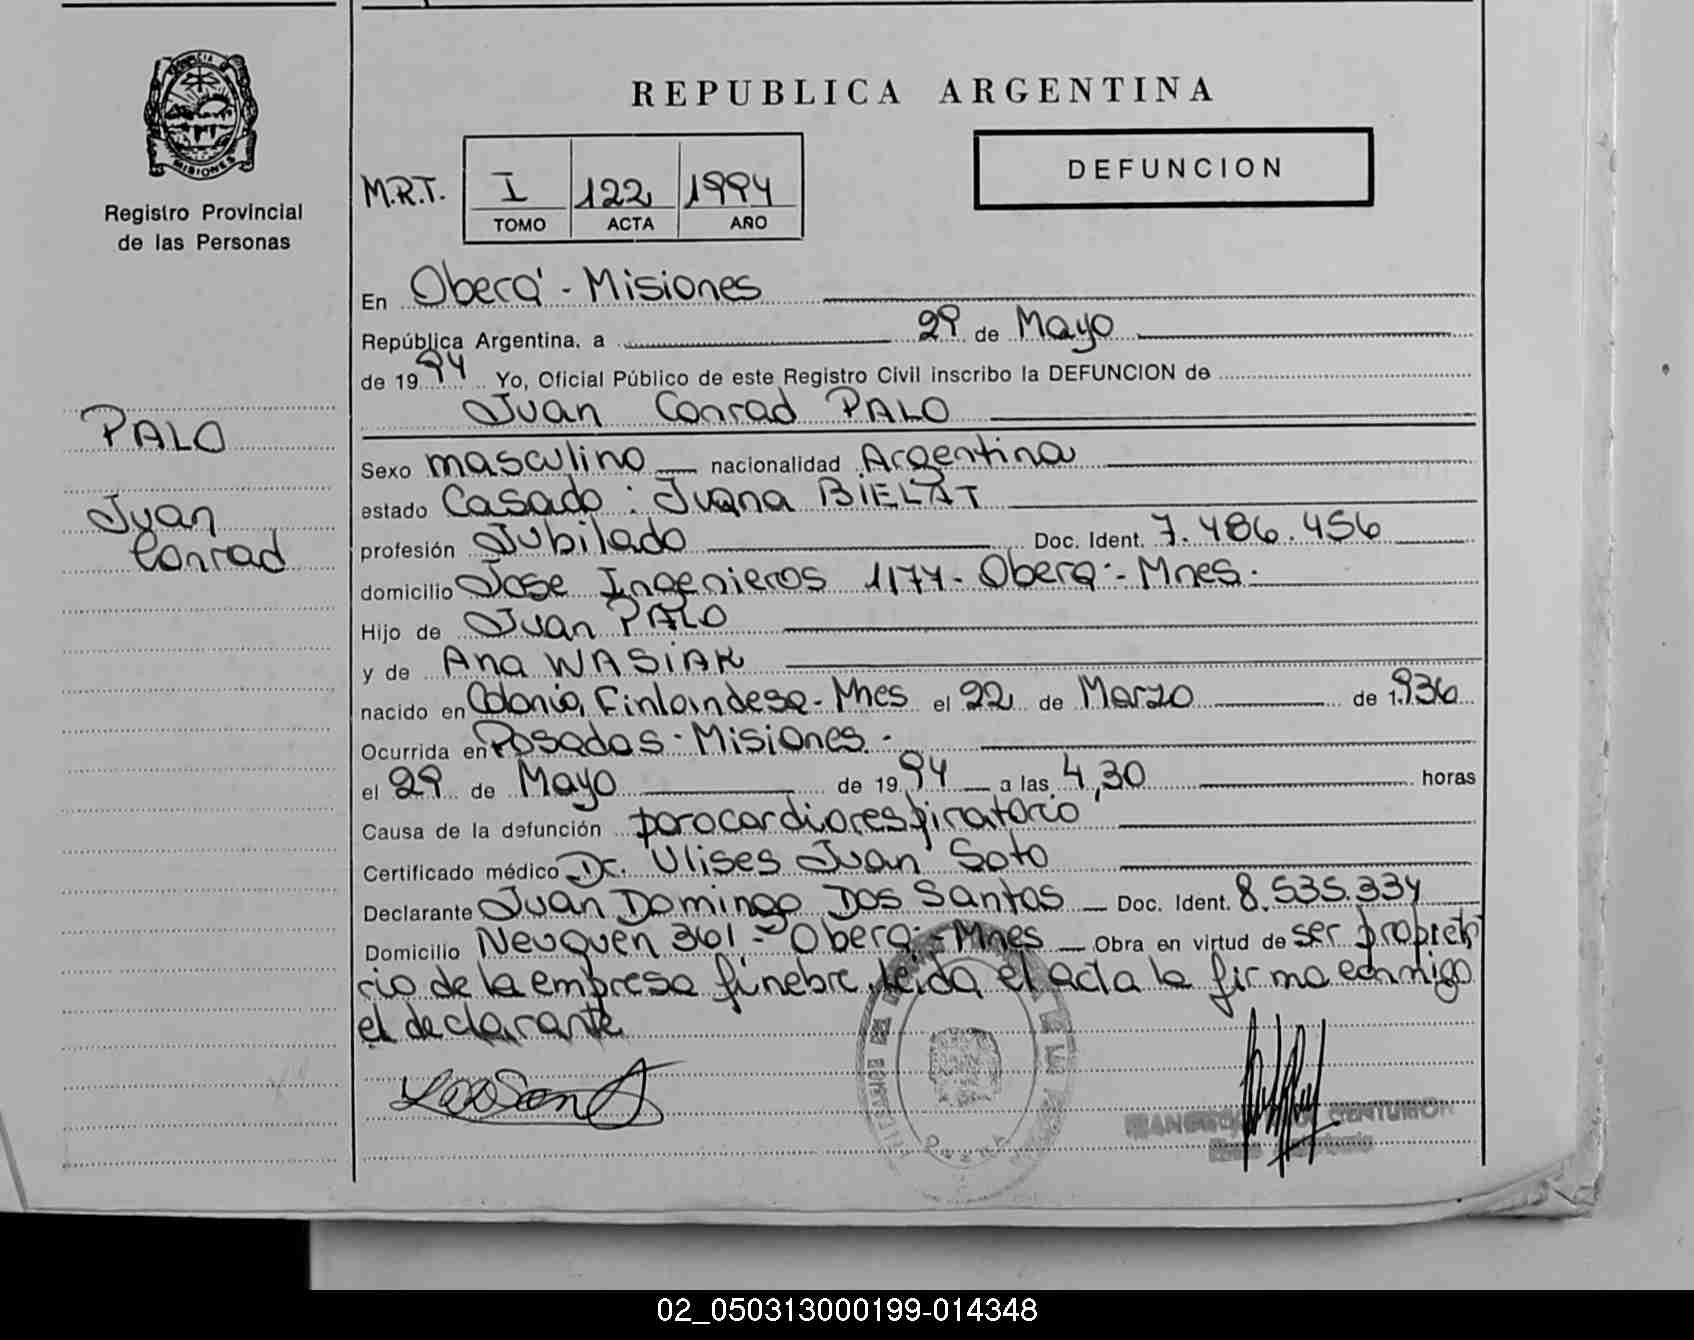 MISIONES
Registro Provincial
de las Personas
PALO
Juan
Conrad
REPUBLICA ARGENTINA
DEFUNCION
M.R.T. I 122 1994
TOMO ACTA AÑO
En Oberá - Misiones
República Argentina, a 29 de Mayo
de 1994 Yo, Oficial Público de este Registro Civil inscribo la DEFUNCION de
Juan Conrad PALO
Sexo masculino nacionalidad Argentina
estado Casado : Juana BIELAT
profesión Jubilado Doc. Ident. 7.486.456
domicilio Jose Ingenieros 1174 - Oberá - Mnes.
Hijo de Juan PALO
y de Ana WASIAK
nacido en Colonia Finlandesa - Mnes el 22 de Marzo de 1.936
Ocurrida en Posadas - Misiones -
el 29 de Mayo de 1994 a las 4,30 horas
Causa de la defunción parocardiorespiratorio
Certificado médico Dr. Ulises Juan Soto
Declarante Juan Domingo Dos Santos Doc. Ident. 8.535.334
Domicilio Neuquen 361 - Oberá - Mnes Obra en virtud de ser propieta
rio de la empresa fúnebre, leida el acta la firma conmigo
el declarante
CENTURION
02_050313000199-014348